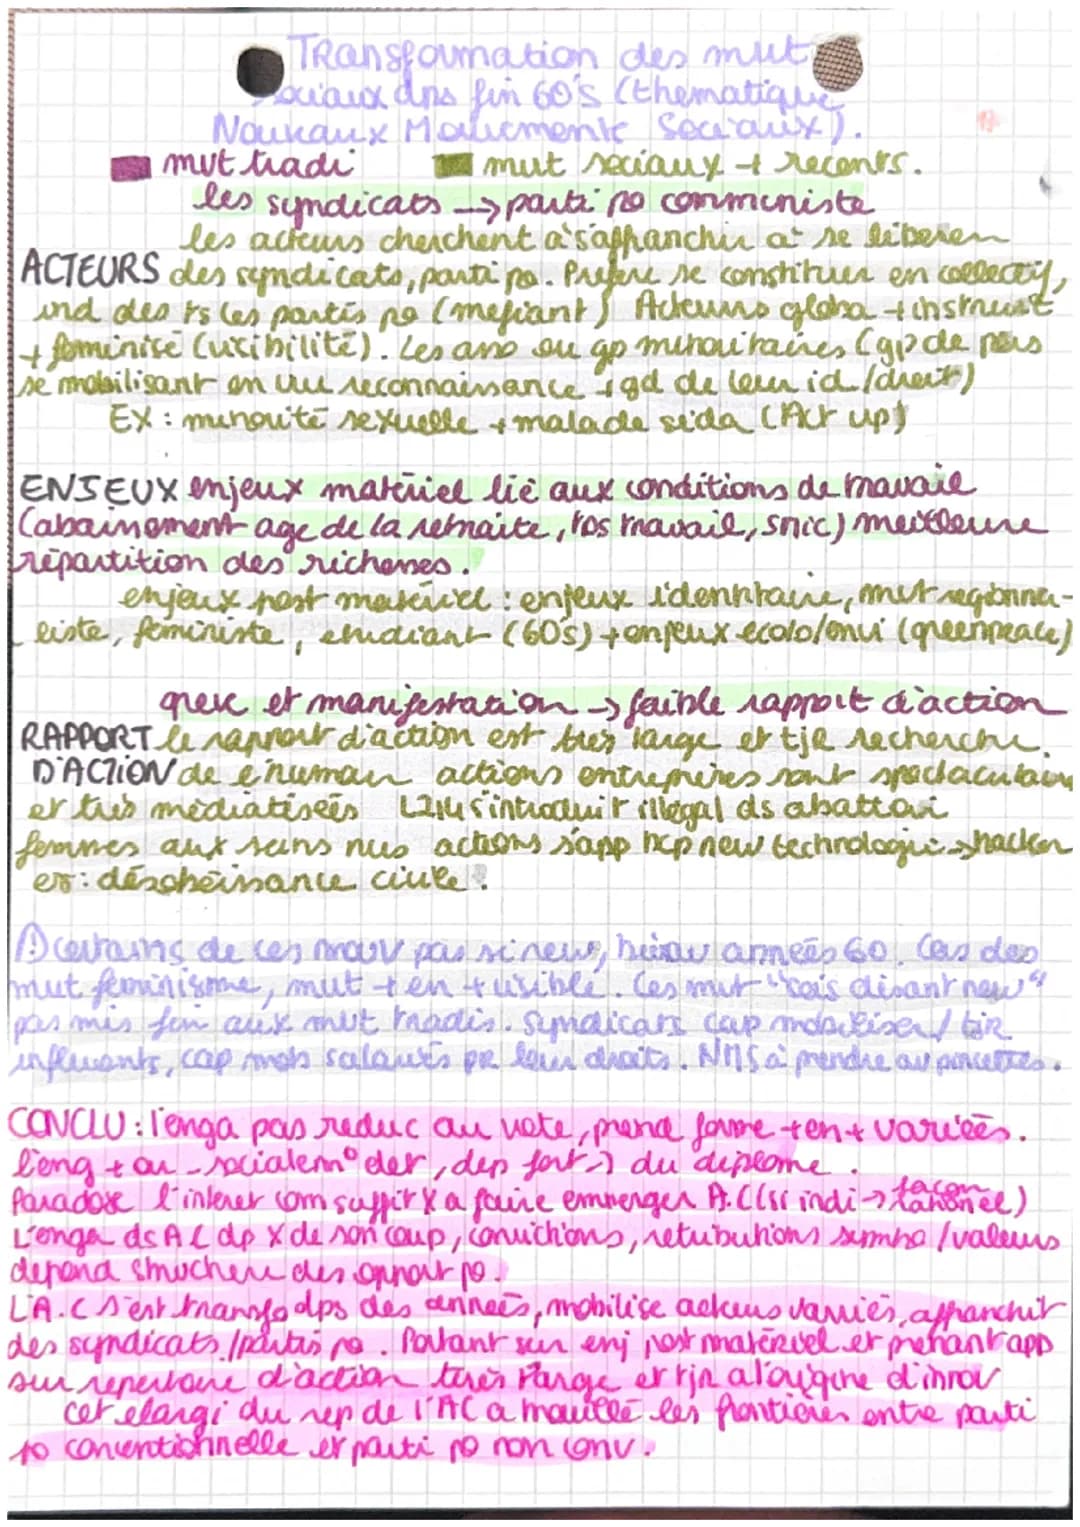 Transformation des mvt
sociaux dps fin 60's (thematique
Nouveaux Mouvements Sociaux).
mvt tradi mvt sociaux + recents.
les syndicats → parti po communiste
les acteurs cherchent à s'affranchir à se liberer
ACTEURS des syndicats, parti po. Prefere se constituer en collectif,
ind des ts les partis po (mefiant) Acteurs globa + instruit
+ feminisé (visibilité). Les aso ou gp minoritaires (gp de pers
se mobilisant en vu reconnaissance + gd de leur id/droit)
EX : minorité sexuelle + malade sida (Act up)
ENJEUX enjeux matériel lié aux conditions de travail
(abaissement age de la retraite, tps travail, smic) meilleure
répartition des richesses.
enjeux post matériel : enjeux identitaire, mvt regionna-
liste, féministe, etudiant (60s) + enjeux ecolo/envi (greenpeace)
greve et manifestation → faible rapport d'action
RAPPORT le rapport d'action est très large et tjr recherche
D'ACTION de l'humour actions entreprises sont spectaculaire
et très médiatisées L214 s'introduit illegal ds abattoir
femmes aux seins nus actions s'app bcp new technologie → hacker
ex : désobeissance civile.
certains de ces mouv pas si new, niveau années 60. Cas des
mvt féminisme, mvt + en + visible. Ces mvt "sois disant new"
pas mis fin aux mvt tradis. Syndicats cap mobiliser / tjr
influents, cap mob salariés pr leur droits. NMS à prendre av pincettes.
CONCLU : l'enga pas reduc au vote, prend forme + en + variées.
l'eng + ou - socialem° der, dep fort → du diplome.
Paradoxe l'interet com suffit X a faire emmerger A.C (ss indi → façon
rationnel)
L'enga ds AC dp X de son coup, convictions, retributions symbo / valeurs
depend structure des opport po.
L'A.C s'est transfo dps des années, mobilise acteurs variés, affranchit
des syndicats / partis po. Portant sur enj post matériel et prenant app
sur repertoire d'action très large et tjr a l'origine d'innov
cet elargi du rep de l'AC a brouillé les frontières entre parti
po conventionnelle et parti po non conv.